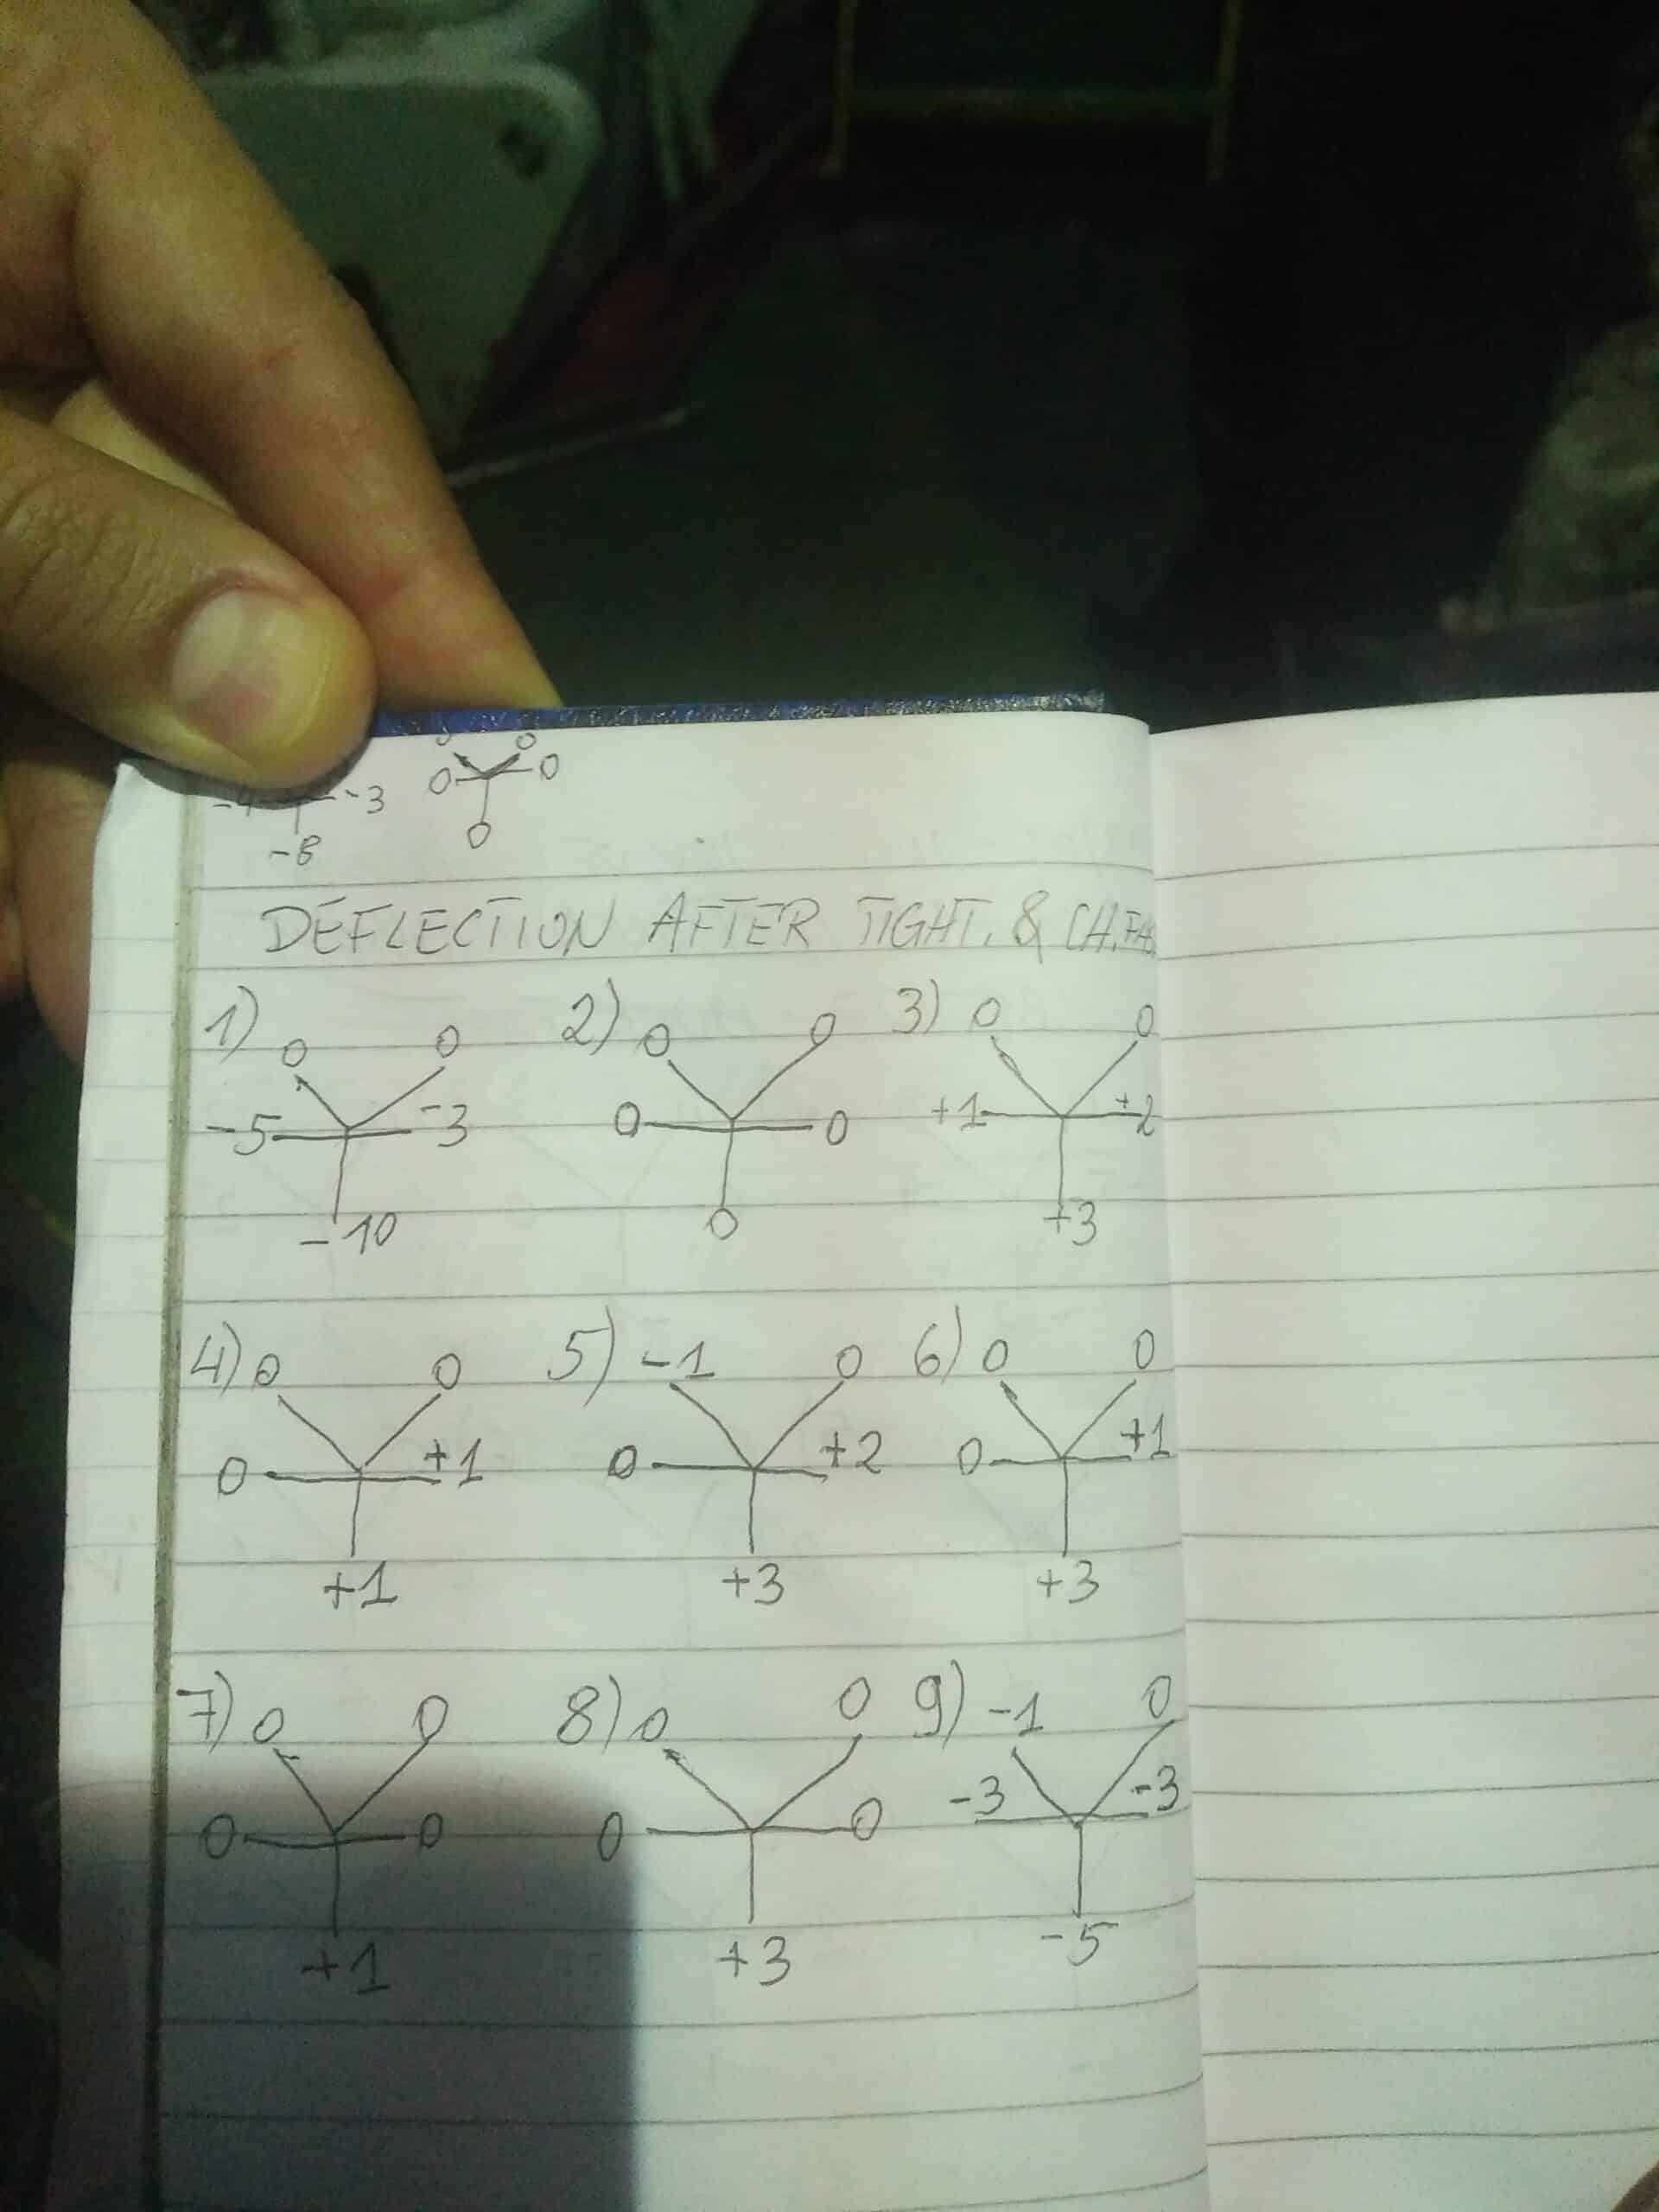 0 0
-4 -3 0 0
-8 0
DEFLECTION AFTER TIGHT. & CH.FAS
1) 0 0 2) 0 0 3) 0 0
-5 -3 0 0 +1 +2
-10 0 +3
4) 0 0 5) -1 0 6) 0 0
0 +1 0 +2 0 +1
+1 +3 +3
7) 0 0 8) 0 0 9) -1 0
0 0 0 0 -3 -3
+1 +3 -5